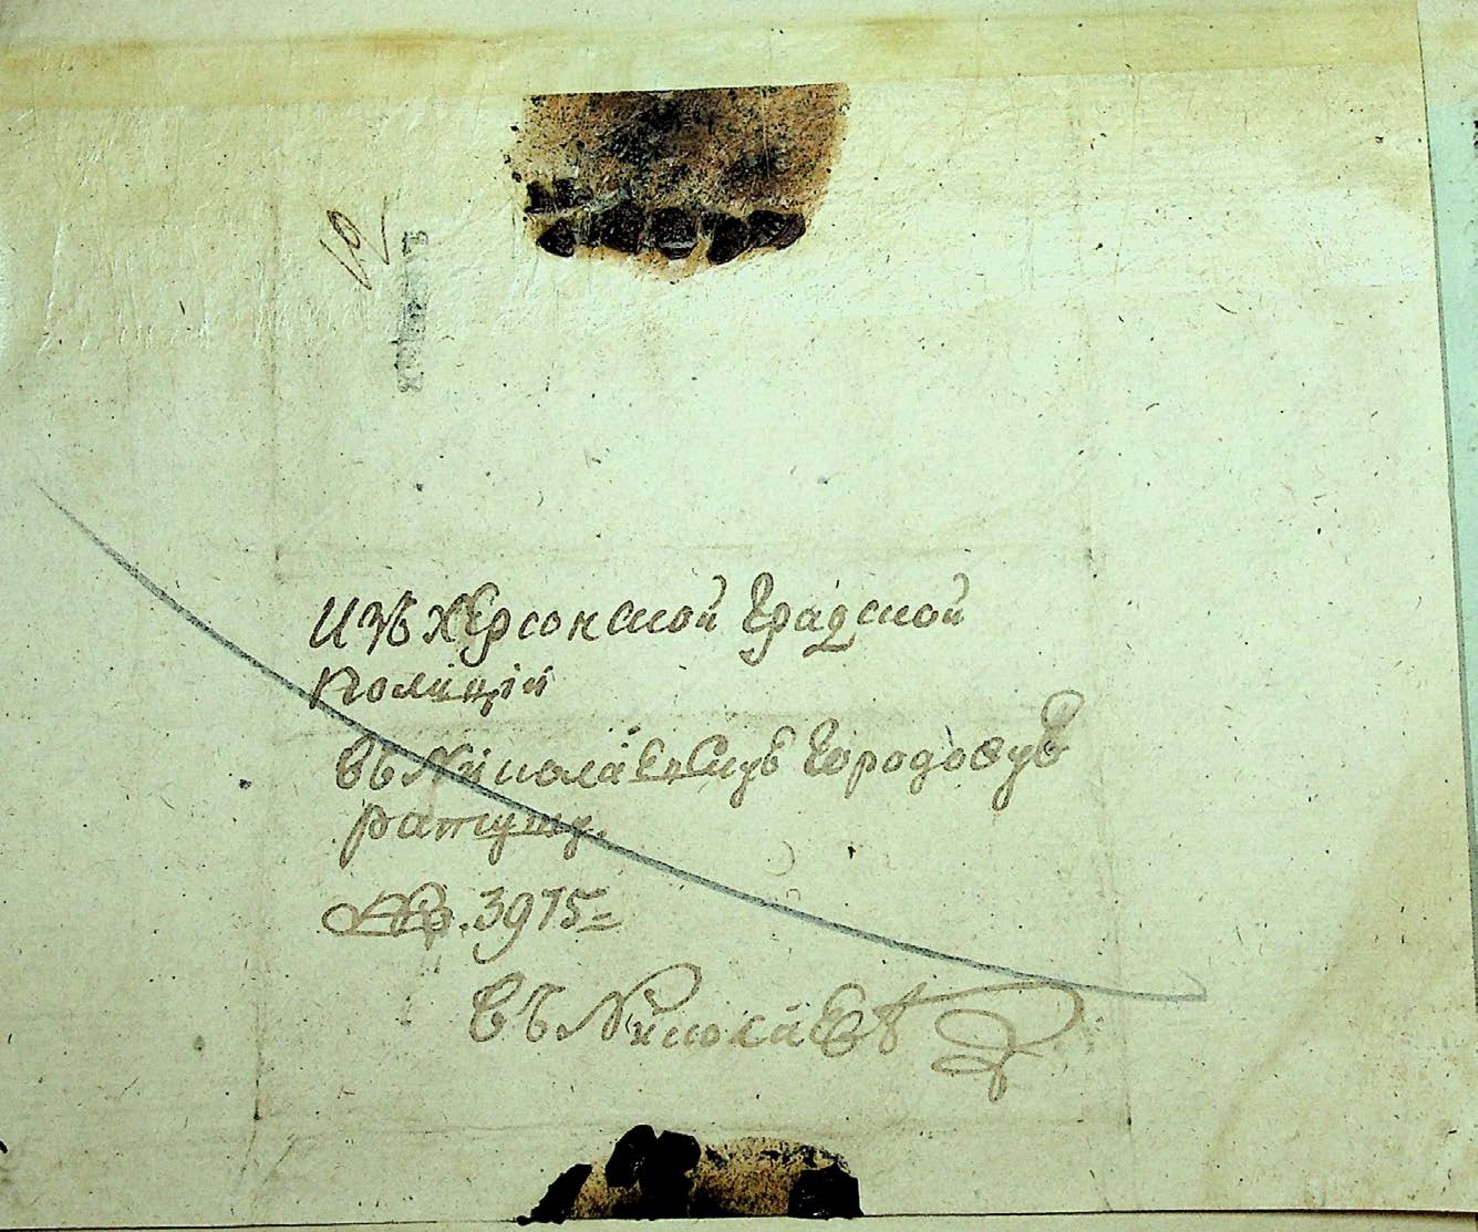 Изъ Херсонской Градской
Полиціи
Въ Николаевскую Городовую
ратушу.
№. 3975=
Въ Николаевъ